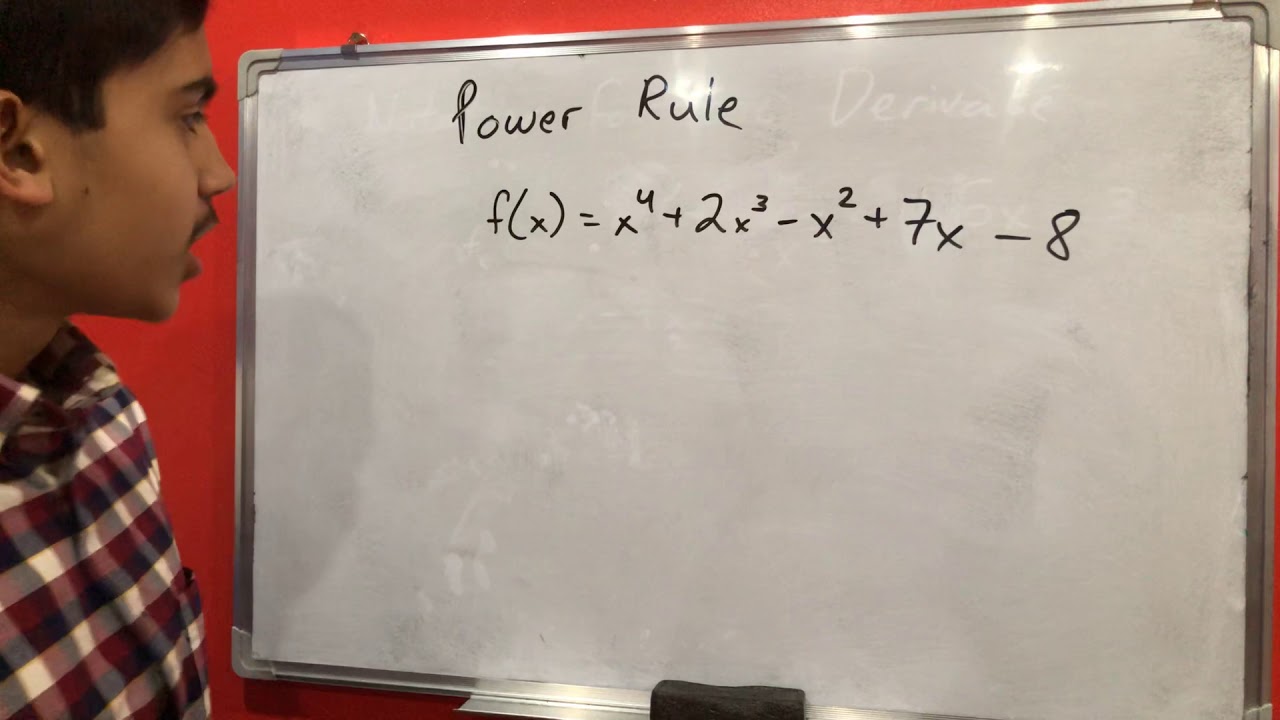 Power Rule
f(x) = x⁴ + 2x³ - x² + 7x - 8